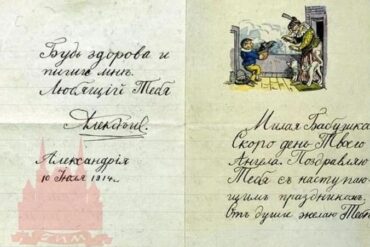 Будь здорова и
пиши мнѣ.
Любящій Тебя
Алексѣй.
Александрія
10 Іюля 1914г.
Милая Бабушка
Скоро день Твоего
Ангела. Поздравляю
Тебя съ наступаю-
щимъ праздникомъ,
Отъ души желаю Тебѣ